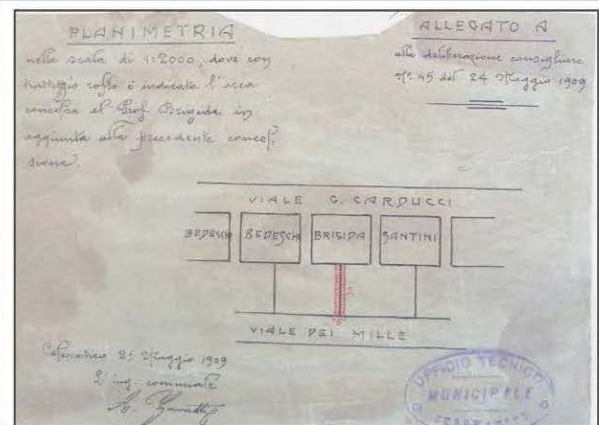 PLANIMETRIA
nella scala di 1:2000, dove con
tratteggio rosso è indicata l'area
concessa al Prof. Brigida in
aggiunta alla precedente conces-
sione.
ALLEGATO A
alla deliberazione consigliare
N° 45 del 24 Maggio 1909
VIALE G. CARDUCCI
BEDESCHI BEDESCHI BRIGIDA SANTINI
VIALE DEI MILLE
Cesenatico 25 Maggio 1909
L'ing. comunale
UFFICIO TECNICO
MUNICIPALE
CESENATICO